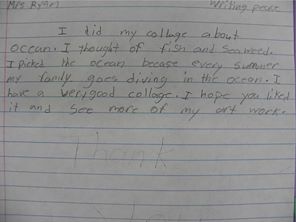 Mrs Ryan Writing peace
I did my collage about
ocean. I thought of fish and seaweed.
I picked the ocean becase every summer
my family goes diving in the ocean. I
have a very good collage. I hope you liked
it and see more of my art work.
Thank